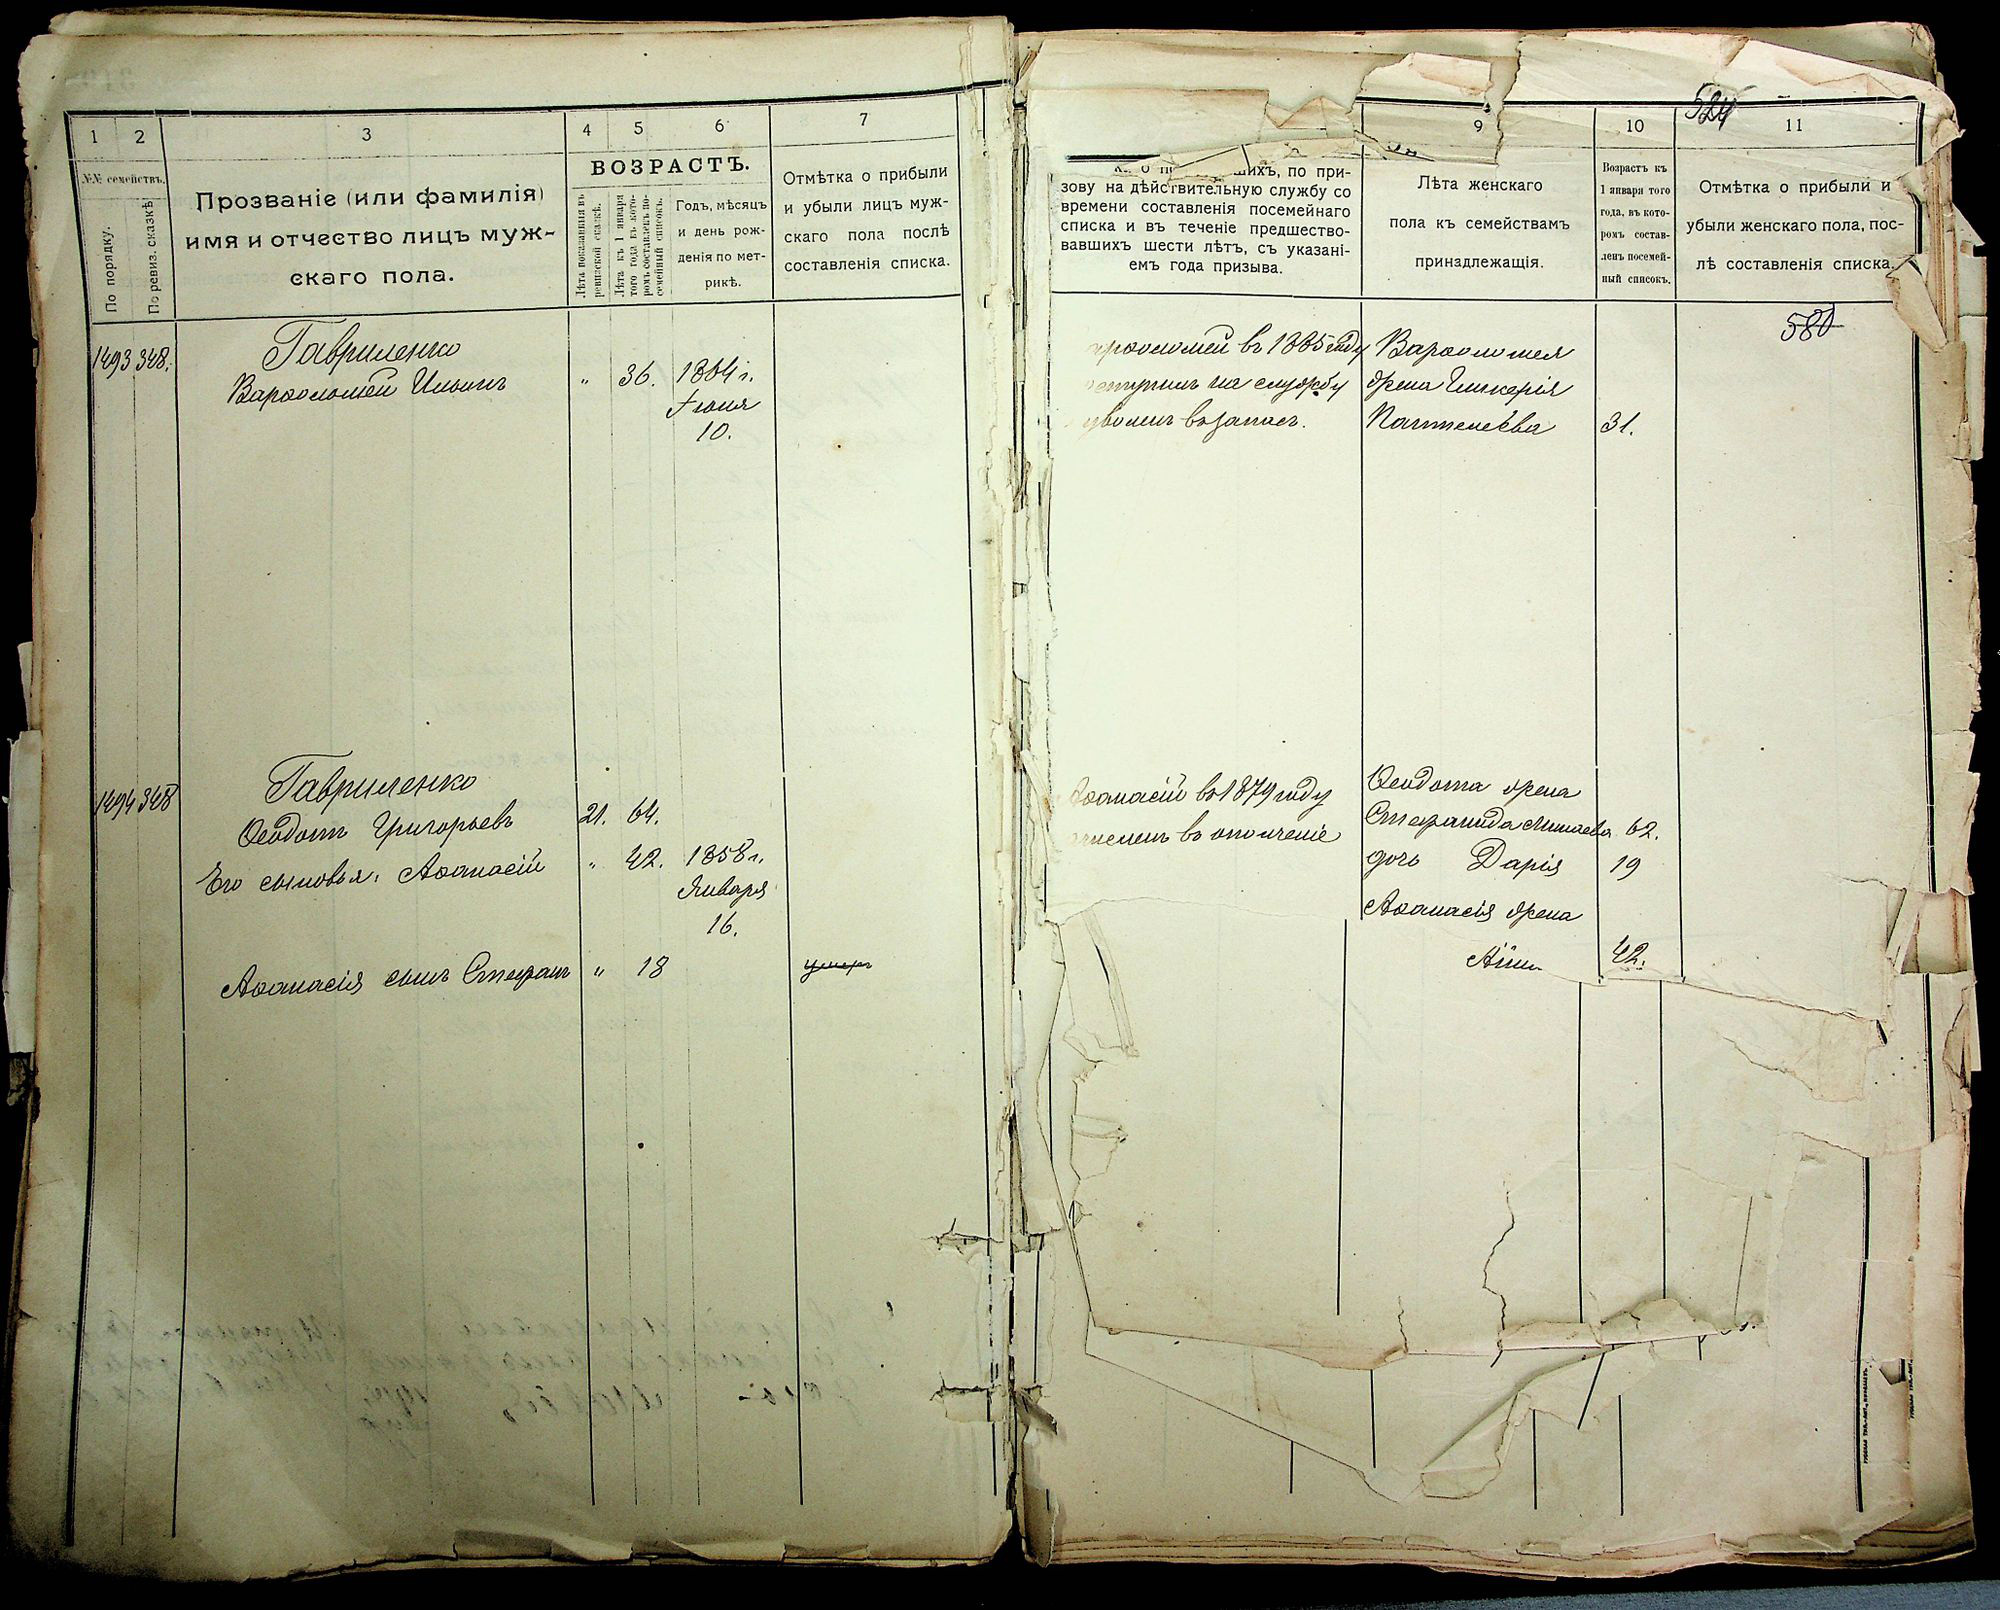 1 2 3 4 5 6 7
№№ семействъ.
По порядку.
По ревиз. сказкѣ
Прозваніе (или фамилія)
имя и отчество лицъ муж-
скаго пола.
ВОЗРАСТЪ.
Лѣта показанныя въ
ревизской сказкѣ.
Лѣта къ 1 января
того года въ кото-
ромъ составленъ по-
семейный списокъ.
Годъ, мѣсяцъ
и день рож-
денія по мет-
рикѣ.
Отмѣтка о прибыли
и убыли лицъ муж-
скаго пола послѣ
составленія списка.
1493 348.
Гавриленко
Варѳоломей Ильинъ " 36. 1864 г.
Іюня
10.
1494 348
Гавриленко
Ѳеодотъ Григорьевъ 21. 64.
Его сыновья: Аѳанасій " 42. 1858 г.
Января
16.
Аѳанасія сынъ Стефанъ " 18 умеръ
524
9 10 11
шихъ, по при-
зову на дѣйствительную службу со
времени составленія посемейнаго
списка и въ теченіе предшество-
вавшихъ шести лѣтъ, съ указані-
емъ года призыва.
Лѣта женскаго
пола къ семействамъ
принадлежащія.
Возрастъ къ
1 января того
года, въ кото-
ромъ состав-
ленъ посемей-
ный списокъ.
Отмѣтка о прибыли и
убыли женскаго пола, пос-
лѣ составленія списка.
580
арѳоломей въ 1885 году
оступилъ на службу
уволенъ въ запасъ.
Варѳоломея
жена Гликерія
Пантелеева 31.
Аѳанасій въ 1879 году
ачисленъ въ ополченіе
Ѳеодота жена
Стефанида Минаева 62.
дочь Дарія 19
Аѳанасія жена
Анна 42.